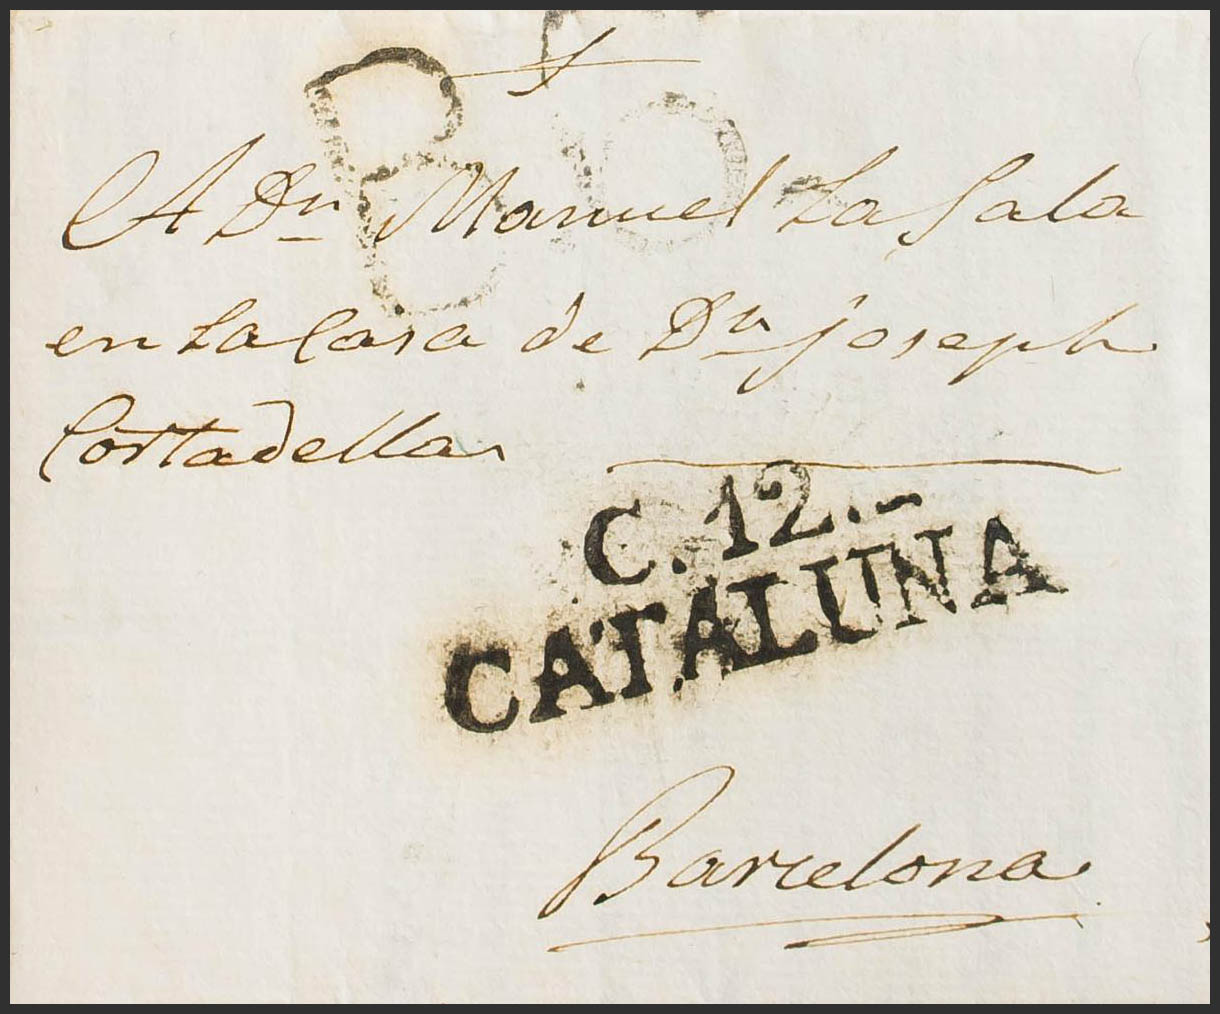 A Dn Manuel La Sala
en la Casa de Dn Joseph
Cortadella
C. 12.
CATALUÑA
Barcelona